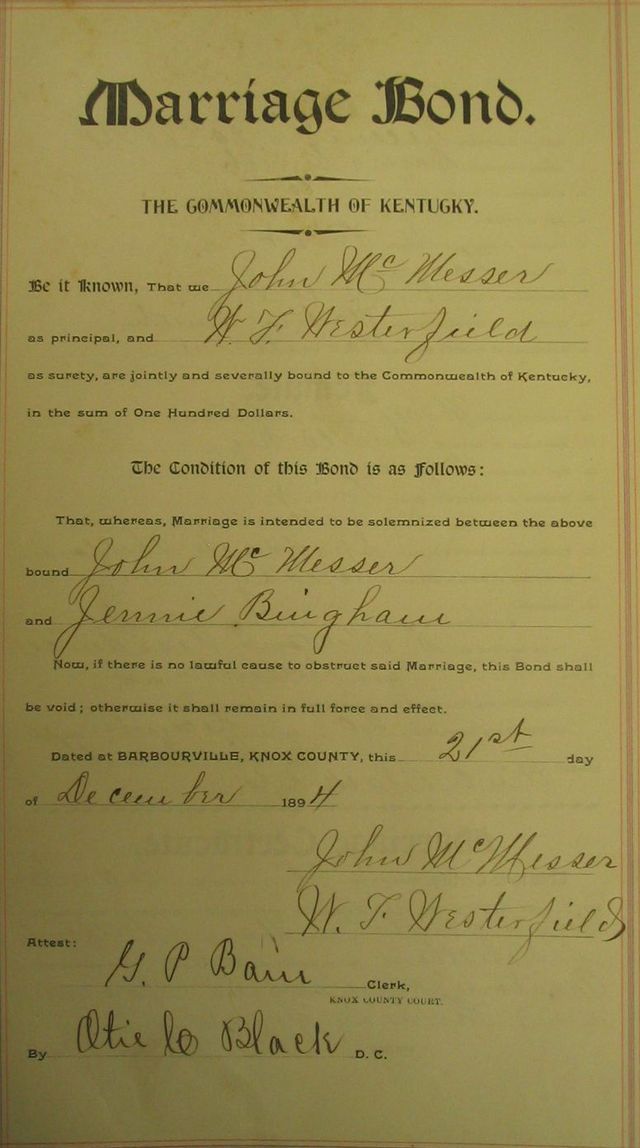 Marriage Bond.
THE COMMONWEALTH OF KENTUCKY.
Be it Known, That we John Mc Messer
as principal, and W. F. Westerfield
as surety, are jointly and severally bound to the Commonwealth of Kentucky,
in the sum of One Hundred Dollars.
The Condition of this Bond is as Follows:
That, whereas, Marriage is intended to be solemnized between the above
bound John Mc Messer
and Jennie Bingham
Now, if there is no lawful cause to obstruct said Marriage, this Bond shall
be void; otherwise it shall remain in full force and effect.
Dated at BARBOURVILLE, KNOX COUNTY, this 21st day
of December 1894
John Mc Messer
W. F. Westerfield
Attest:
G. P Bain Clerk,
KNOX COUNTY COURT.
By Otie Black D. C.